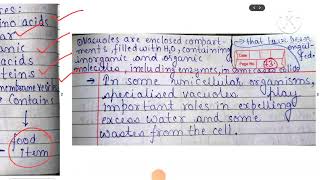 es:
ino acids
ar
anic
acids
oteins
membrane vesicle
contains
food
item
Vacuoles are enclosed compart-
ments filled with H2O, containing
inorganic and organic
molecules, including enzymes, in some cases solids
→ that have been
engulf-
fed.
Date
Page No.
→ In some unicellular organisms,
specialised vacuoles play
important roles in expelling
excess water and some
wastes from the cell.